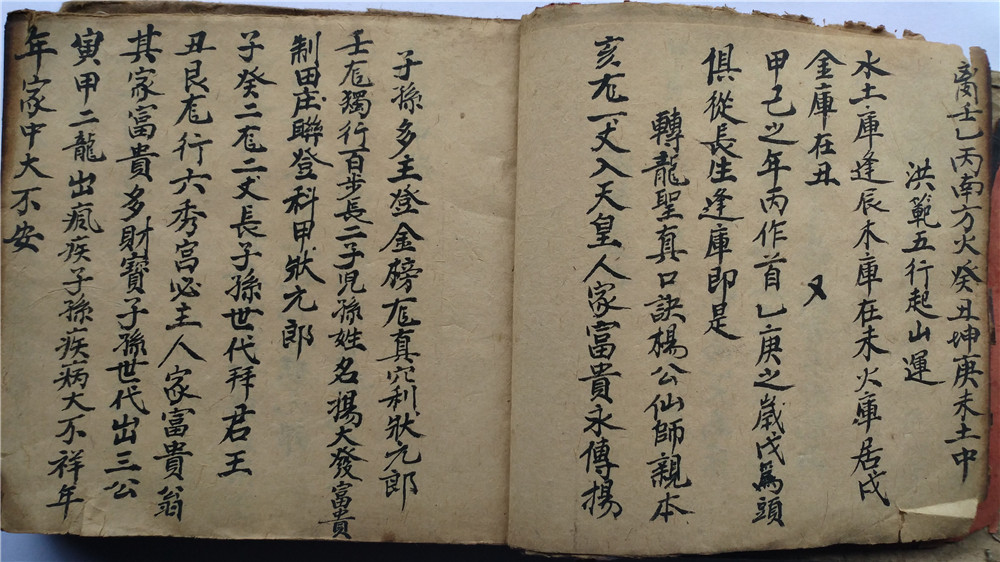 離壬乙丙南方火癸丑坤庚未土中
洪範五行起山運
水土庫逢辰木庫在未火庫居戌
金庫在丑
又
甲己之年丙作首乙庚之歲戊為頭
俱從長生逢庫即是
轉龍聖真口訣楊公仙師親本
亥龙一丈入天皇人家富貴永傳揚
子孫多主登金榜龙真穴利狀元郎
壬龙獨行百步長二子児孫姓名揚大發富貴
制田庄聯登科甲狀元郎
子癸二龙二丈長子孫世代拜君王
丑艮龙行六秀宮必主人家富貴翁
其家富貴多財寶子孫世代出三公
寅甲二龍出瘋疾子孫疾病大不祥年
年家中大不安